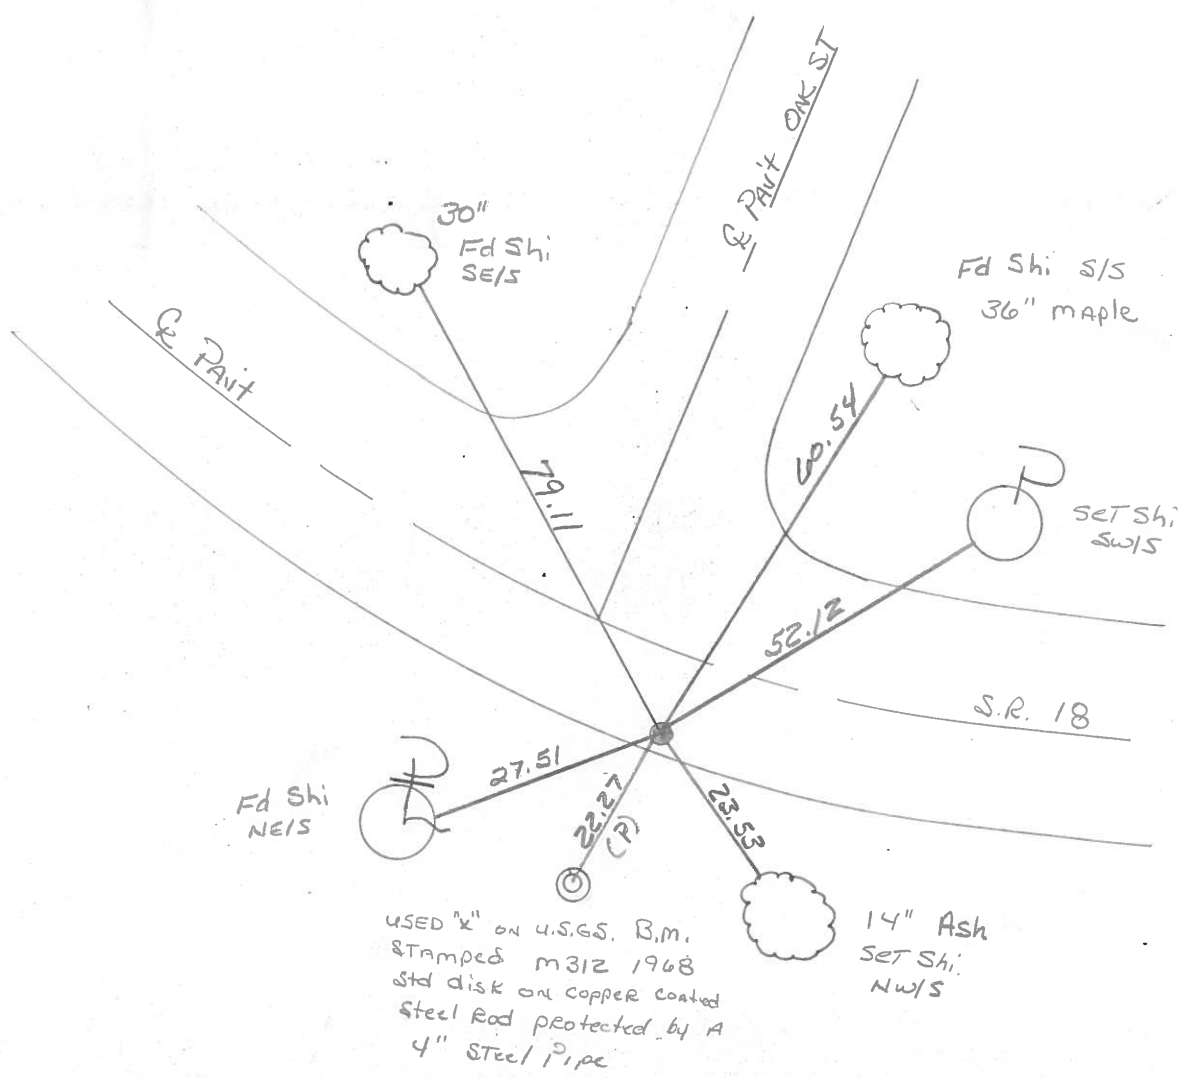 ℄ PAV't OAK ST
30"
Fd Shi
SE/S
Fd Shi S/S
36" MAple
℄ PAV't
60.54
79.11
SeT Shi
SW/S
52.12
S.R. 18
27.51
Fd Shi
NE/S
22.27
(P)
23.53
14" Ash
SeT Shi
NW/S
USED "X" ON U.S.G.S. B.M.
STAmped M312 1968
Std disk on COPPER COATed
Steel Rod protected by A
4" STeel Pipe